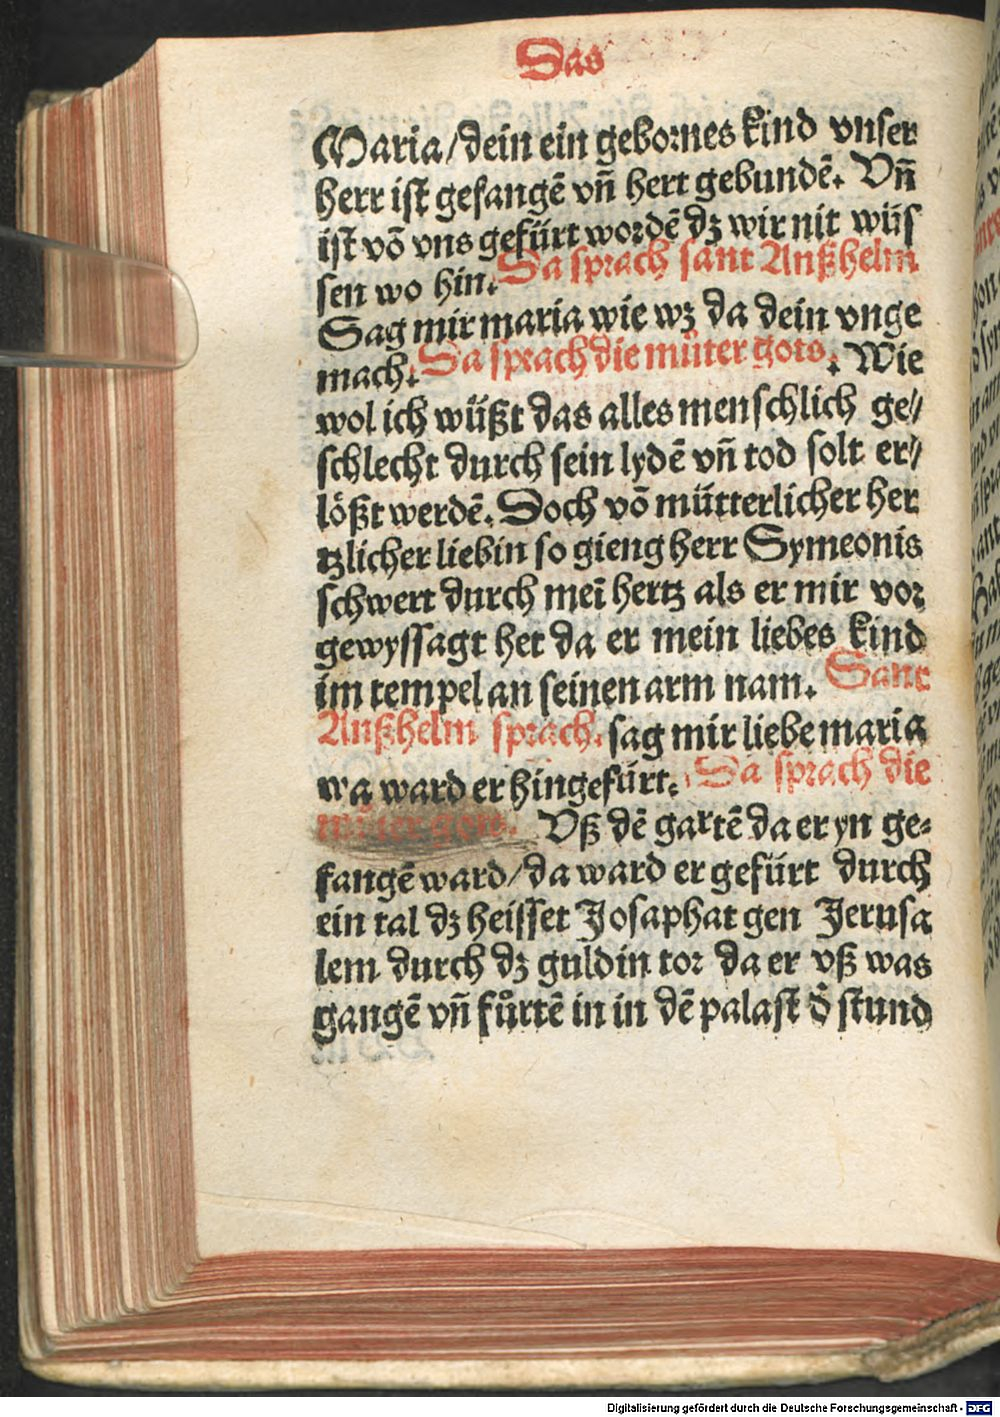 Das
Maria/dein ein gebornes kind vnser
herr ist gefangē vn̄ hert gebundē. Vn̄
ist vō vns gefürt wordē dz wir nit wüs
sen wo hin. Da sprach sant Anßhelm
Sag mir maria wie wz da dein vnge
mach. Da sprach die můter gots. Wie
wol ich wüßt das alles menschlich ge⸗
schlecht durch sein lydē vn̄ tod solt er⸗
lößt werdē. Doch vō mütterlicher her
tzlicher liebin so gieng herr Symeonis
schwert durch meī hertz als er mir vor
gewyssagt het da er mein liebes kind
im tempel an seinen arm nam. Sant
Anßhelm sprach. sag mir liebe maria
wa ward er hingefürt. Da sprach die
můter gots. Vß dē gartē da er yn ge⸗
fangē ward/da ward er gefürt durch
ein tal dz heisset Josaphat gen Jerusa
lem durch dz guldin tor da er vß was
gangē vn̄ fůrtē in in dē palast d̄ stund
Digitalisierung gefördert durch die Deutsche Forschungsgemeinschaft - DFG